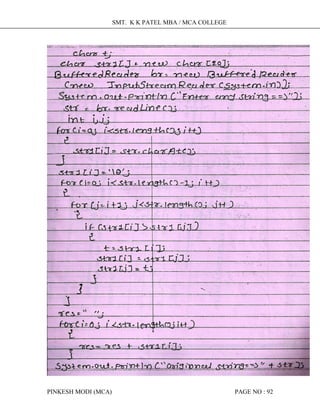 SMT. K K PATEL MBA / MCA COLLEGE
char t;
char str1[] = new char[20];
BufferedReader br = new BufferedReader
(new InputStreamReader(System.in));
System.out.println("Enter any string ==>");
str = br.readLine();
int i,j;
for(i=0; i<str.length(); i++)
{
str1[i] = str.charAt(i);
}
str1[i] = '\0';
for(i=0; i<str.length()-1; i++)
{
for(j=i+1; j<str.length(); j++)
{
if(str1[i]>str1[j])
{
t=str1[i];
str1[i] = str1[j];
str1[j] = t;
}
}
}
res=" ";
for(i=0; i<str.length();i++)
{
res= res + str1[i];
System.out.println("Original string=>" + str);
PINKESH MODI (MCA) PAGE NO : 92